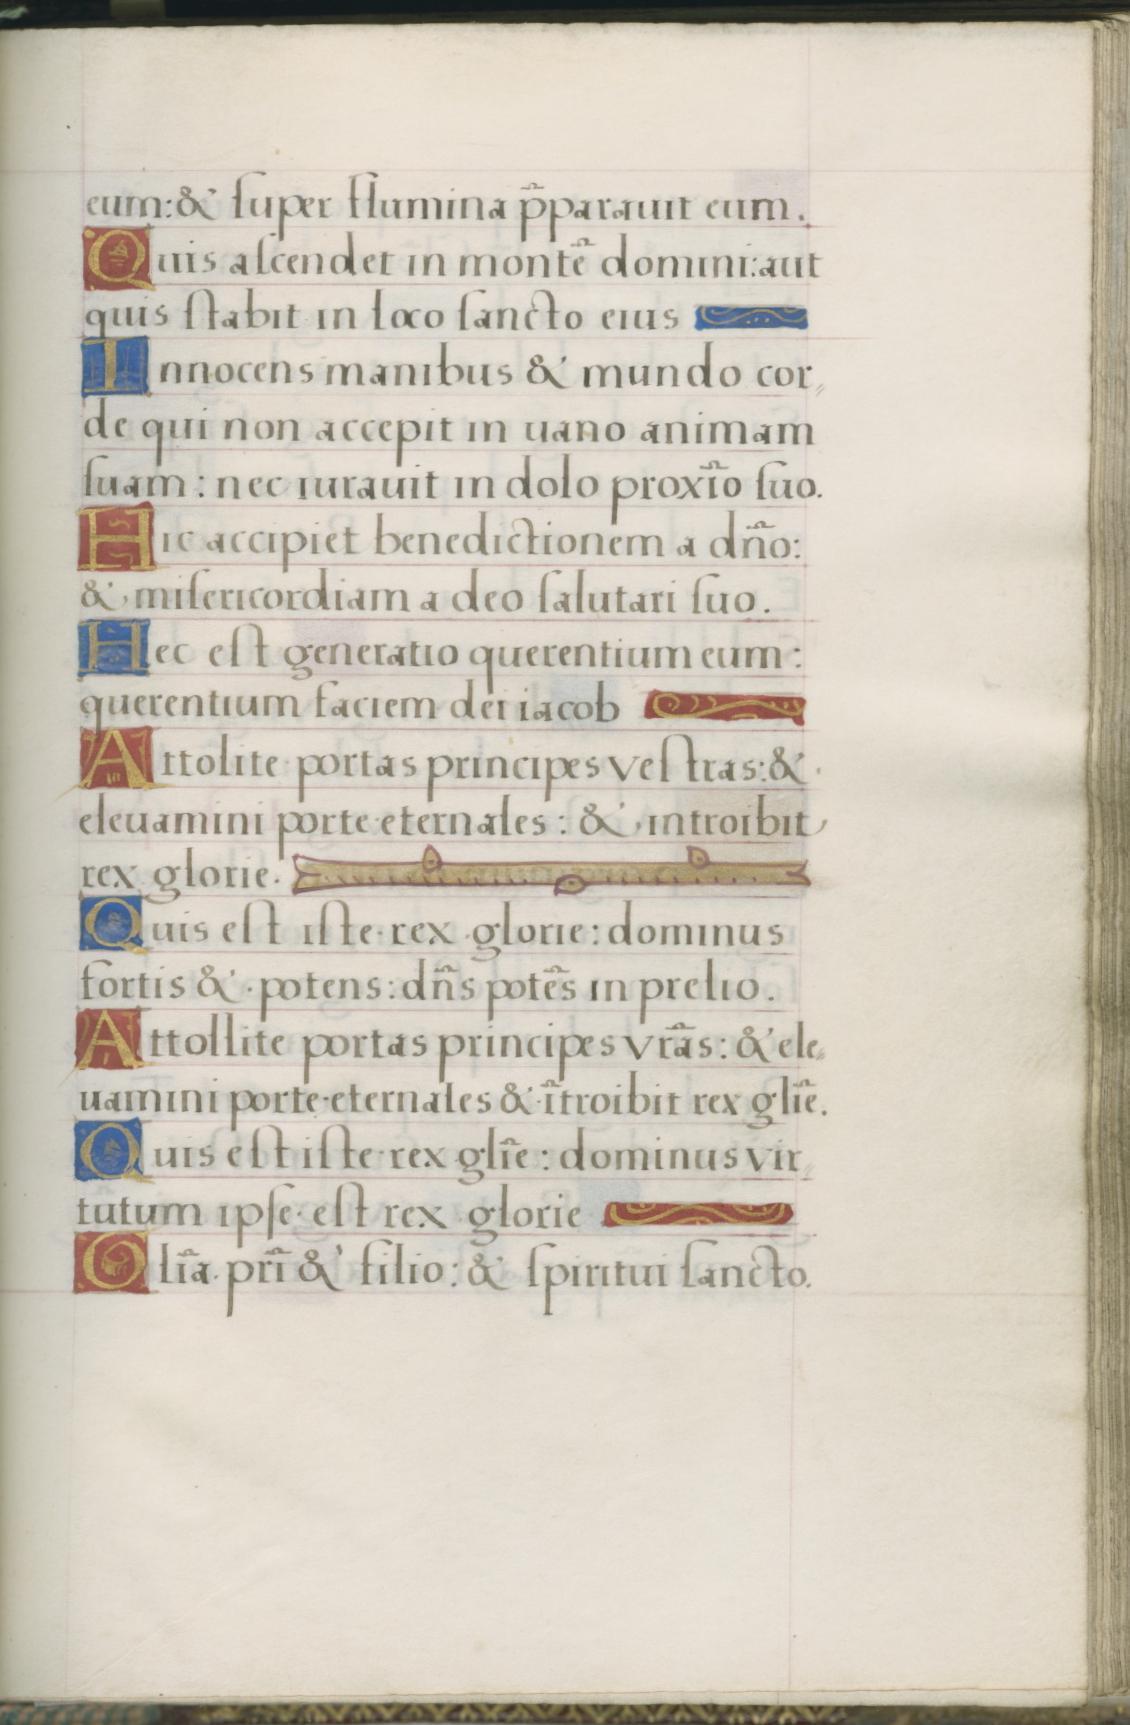 eum: & super flumina p̄parauit eum.
Quis ascendet in montē domini: aut
quis stabit in loco sancto eius
Innocens manibus & mundo cor,,
de qui non accepit in uano animam
suam: nec iurauit in dolo proxīo suo.
Hic accipiet benedictionem a dño:
& misericordiam a deo salutari suo.
Hec est generatio querentium eum:
querentium faciem dei iacob
Attolite portas principes vestras: &
eleuamini porte eternales: & introibit
rex glorie.
Quis est iste rex glorie: dominus
fortis & potens: dñs potēs in prelio.
Attollite portas principes vr̄as: & ele,,
uamini porte eternales & ītroibit rex glīe.
Quis est iste rex glīe: dominus vir,,
tutum ipse est rex glorie
Glīa prī & filio: & spiritui sancto.